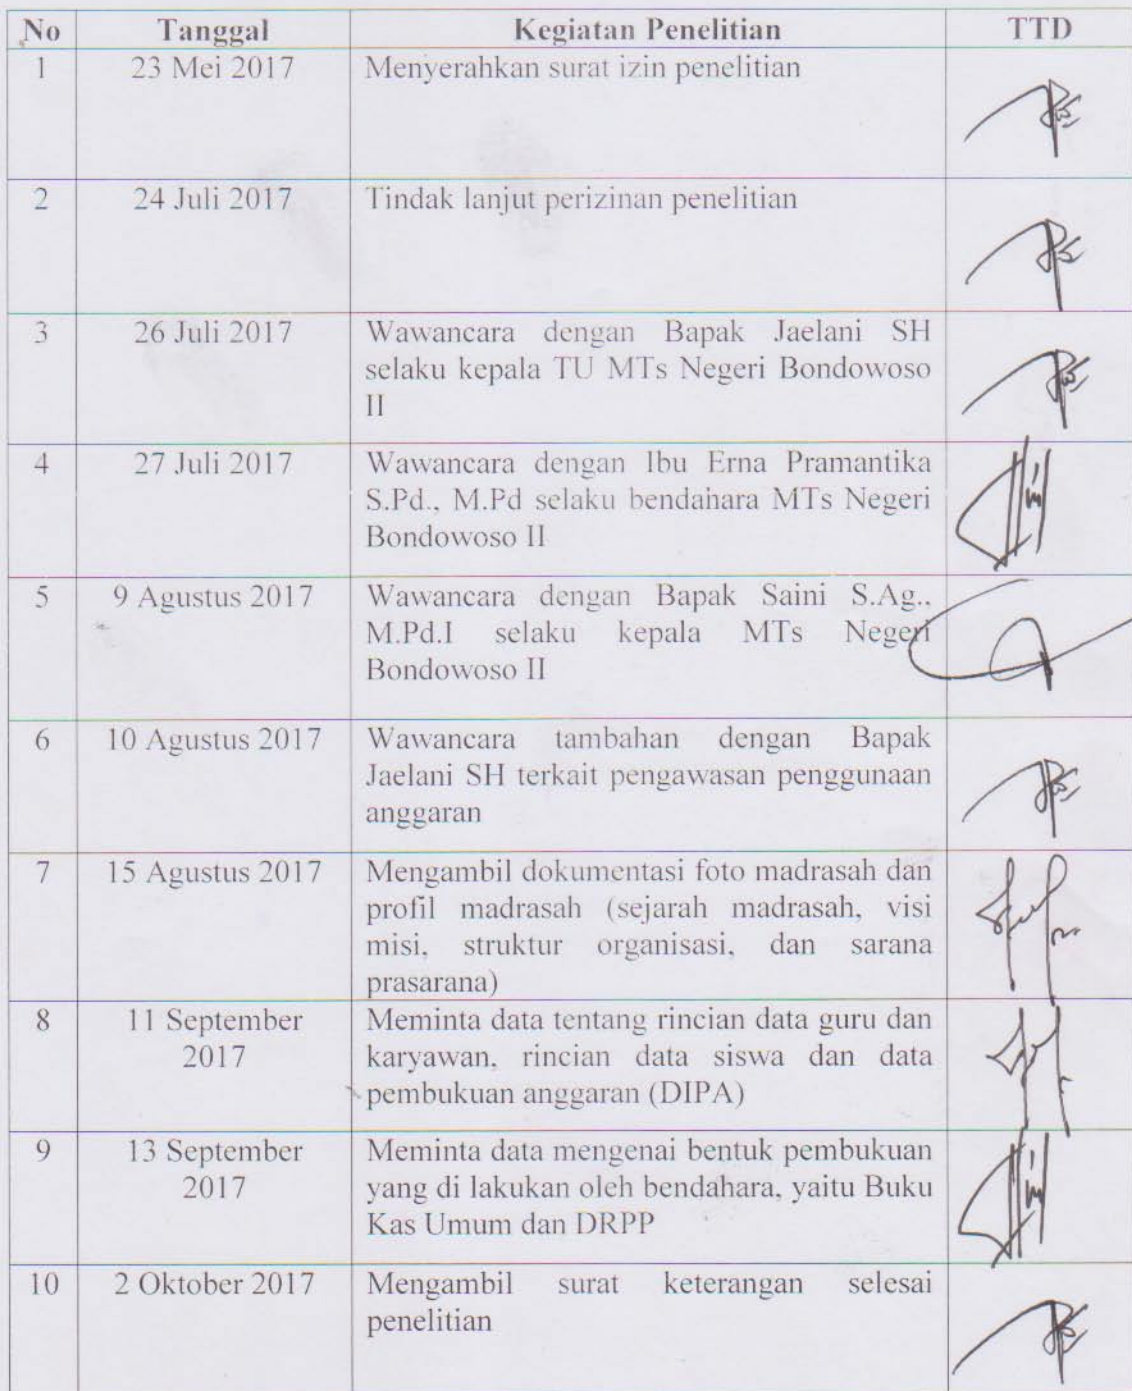 No Tanggal Kegiatan Penelitian TTD
1 23 Mei 2017 Menyerahkan surat izin penelitian
2 24 Juli 2017 Tindak lanjut perizinan penelitian
3 26 Juli 2017 Wawancara dengan Bapak Jaelani SH
selaku kepala TU MTs Negeri Bondowoso
II
4 27 Juli 2017 Wawancara dengan Ibu Erna Pramantika
S.Pd., M.Pd selaku bendahara MTs Negeri
Bondowoso II
5 9 Agustus 2017 Wawancara dengan Bapak Saini S.Ag.,
M.Pd.I selaku kepala MTs Negeri
Bondowoso II
6 10 Agustus 2017 Wawancara tambahan dengan Bapak
Jaelani SH terkait pengawasan penggunaan
anggaran
7 15 Agustus 2017 Mengambil dokumentasi foto madrasah dan
profil madrasah (sejarah madrasah, visi
misi, struktur organisasi, dan sarana
prasarana)
8 11 September Meminta data tentang rincian data guru dan
2017 karyawan, rincian data siswa dan data
pembukuan anggaran (DIPA)
9 13 September Meminta data mengenai bentuk pembukuan
2017 yang di lakukan oleh bendahara, yaitu Buku
Kas Umum dan DRPP
10 2 Oktober 2017 Mengambil surat keterangan selesai
penelitian